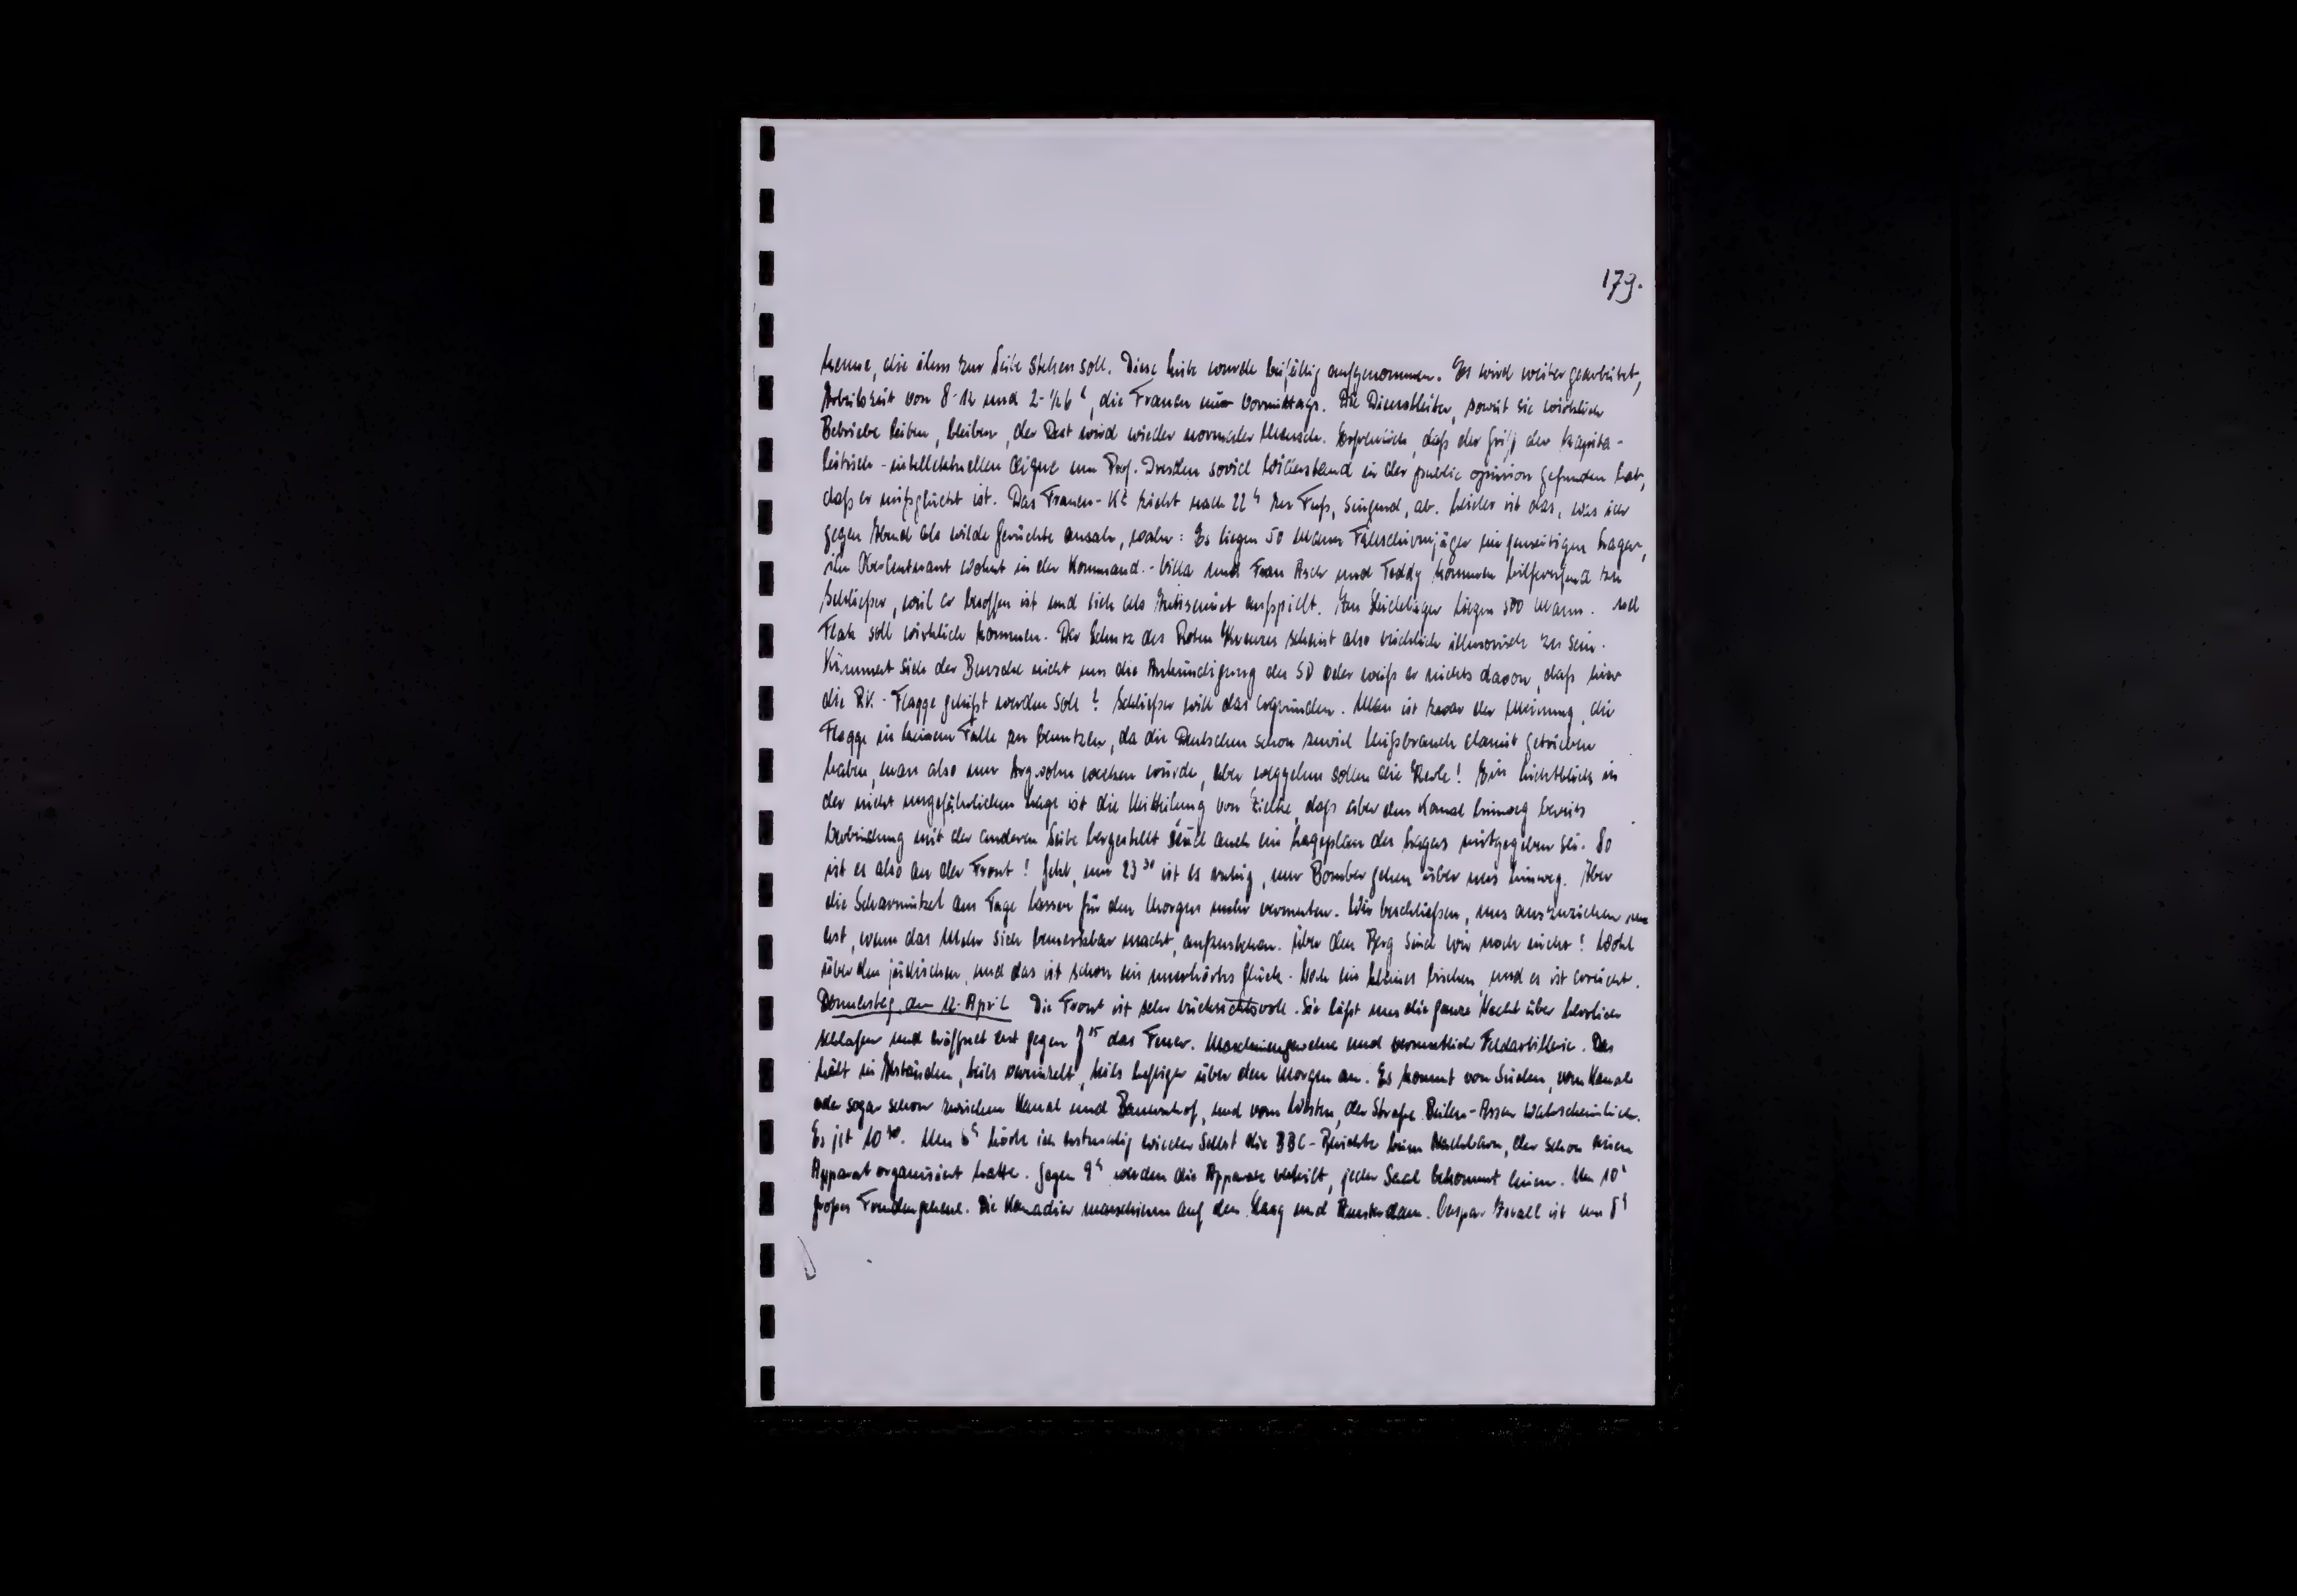 179.
kenne, die ihm zur Seite stehen soll. Diese Liste wurde beifällig aufgenommen. Es wird weiter gearbeitet,
Arbeitszeit von 8-12 und 2-1/2 6 h, die Frauen nur vormittags. Die Dienstleiter, soweit sie wirklich
Betriebe leiten, bleiben, der Rest wird wieder normaler Mensch. Erfreulich, daß der Griff der kapita-
listisch-intellektuellen Clique um Prof. Dresden soviel Widerstand in der public opinion gefunden hat,
daß er mißglückt ist. Das Frauen-K zieht nach 22 h zu Fuß, singend, ab. Leider ist das, was ich
gegen Abend als wilde Gerüchte ansah, wahr: Es liegen 50 Mann Fallschirmjäger im jenseitigen Lager,
ihr Oberleutnant wohnt in der Kommand.-Villa und Frau Asch und Teddy kommen hilferufend zu
Schliesser, weil er besoffen ist und sich als Antisemit aufspielt. Im 500 Mann. und
Flak soll wirklich kommen. Der Schutz des Roten Kreuzes scheint also reichlich illusorisch zu sein.
Kümmert sich der Bursche nicht um die Ankündigung des SD oder weiß er nichts davon, daß hier
die R.K.-Flagge gehißt werden soll? Schliesser will das ergründen. Man ist zwar der Meinung, die
Flagge in keinem Falle zu benutzen, da die Deutschen schon zuviel Mißbrauch damit getrieben
haben, man also nur Argwohn wecken würde, aber weggehen sollen die Kerle! Ein Lichtblick in
der nicht ungefährlichen Lage ist die Mitteilung von Zielke, daß über den Kanal hinweg bereits
Verbindung mit der anderen Seite hergestellt und auch ein Lageplan des Lagers mitgegeben sei. So
ist es also an der Front! Jetzt, um 23 30 ist es ruhig, nur Bomber gehen über uns hinweg. Aber
die Scharmützel am Tage lassen für den Morgen mehr vermuten. Wir beschließen, uns auszuziehen und
erst, wenn das Mehr sich bemerkbar macht, aufzustehen. Über den Berg sind wir noch nicht! Wohl
über den jüdischen, und das ist schon ein unerhörtes Glück. Noch ein kleines bischen, und es ist erreicht.
Donnerstag, den 12. April Die Front ist sehr rücksichtsvoll. Sie läßt uns die ganze Nacht über herrlich
schlafen und eröffnet erst gegen 7 15 das Feuer. Maschinengewehre und vermutlich Feldartillerie. Das
hält in Abständen, teils vereinzelt, teils heftiger über den Morgen an. Es kommt von Süden, vom Kanal
oder sogar schon zwischen Kanal und Bauernhof, und vom Westen, der Straße Beilen-Assen wahrscheinlich.
Es ist 10 30. Um 8 h höre ich erstmalig wieder selbst die BBC-Berichte beim Nachbarn, der schon einen
Apparat organisiert hatte. Gegen 9 h werden die Apparate verteilt, jeder Saal bekommt einen. Um 10 h
großes Freudengeheul. Die Kanadier marschieren auf den Haag und Amsterdam. Caspar Israel ist um 8 h